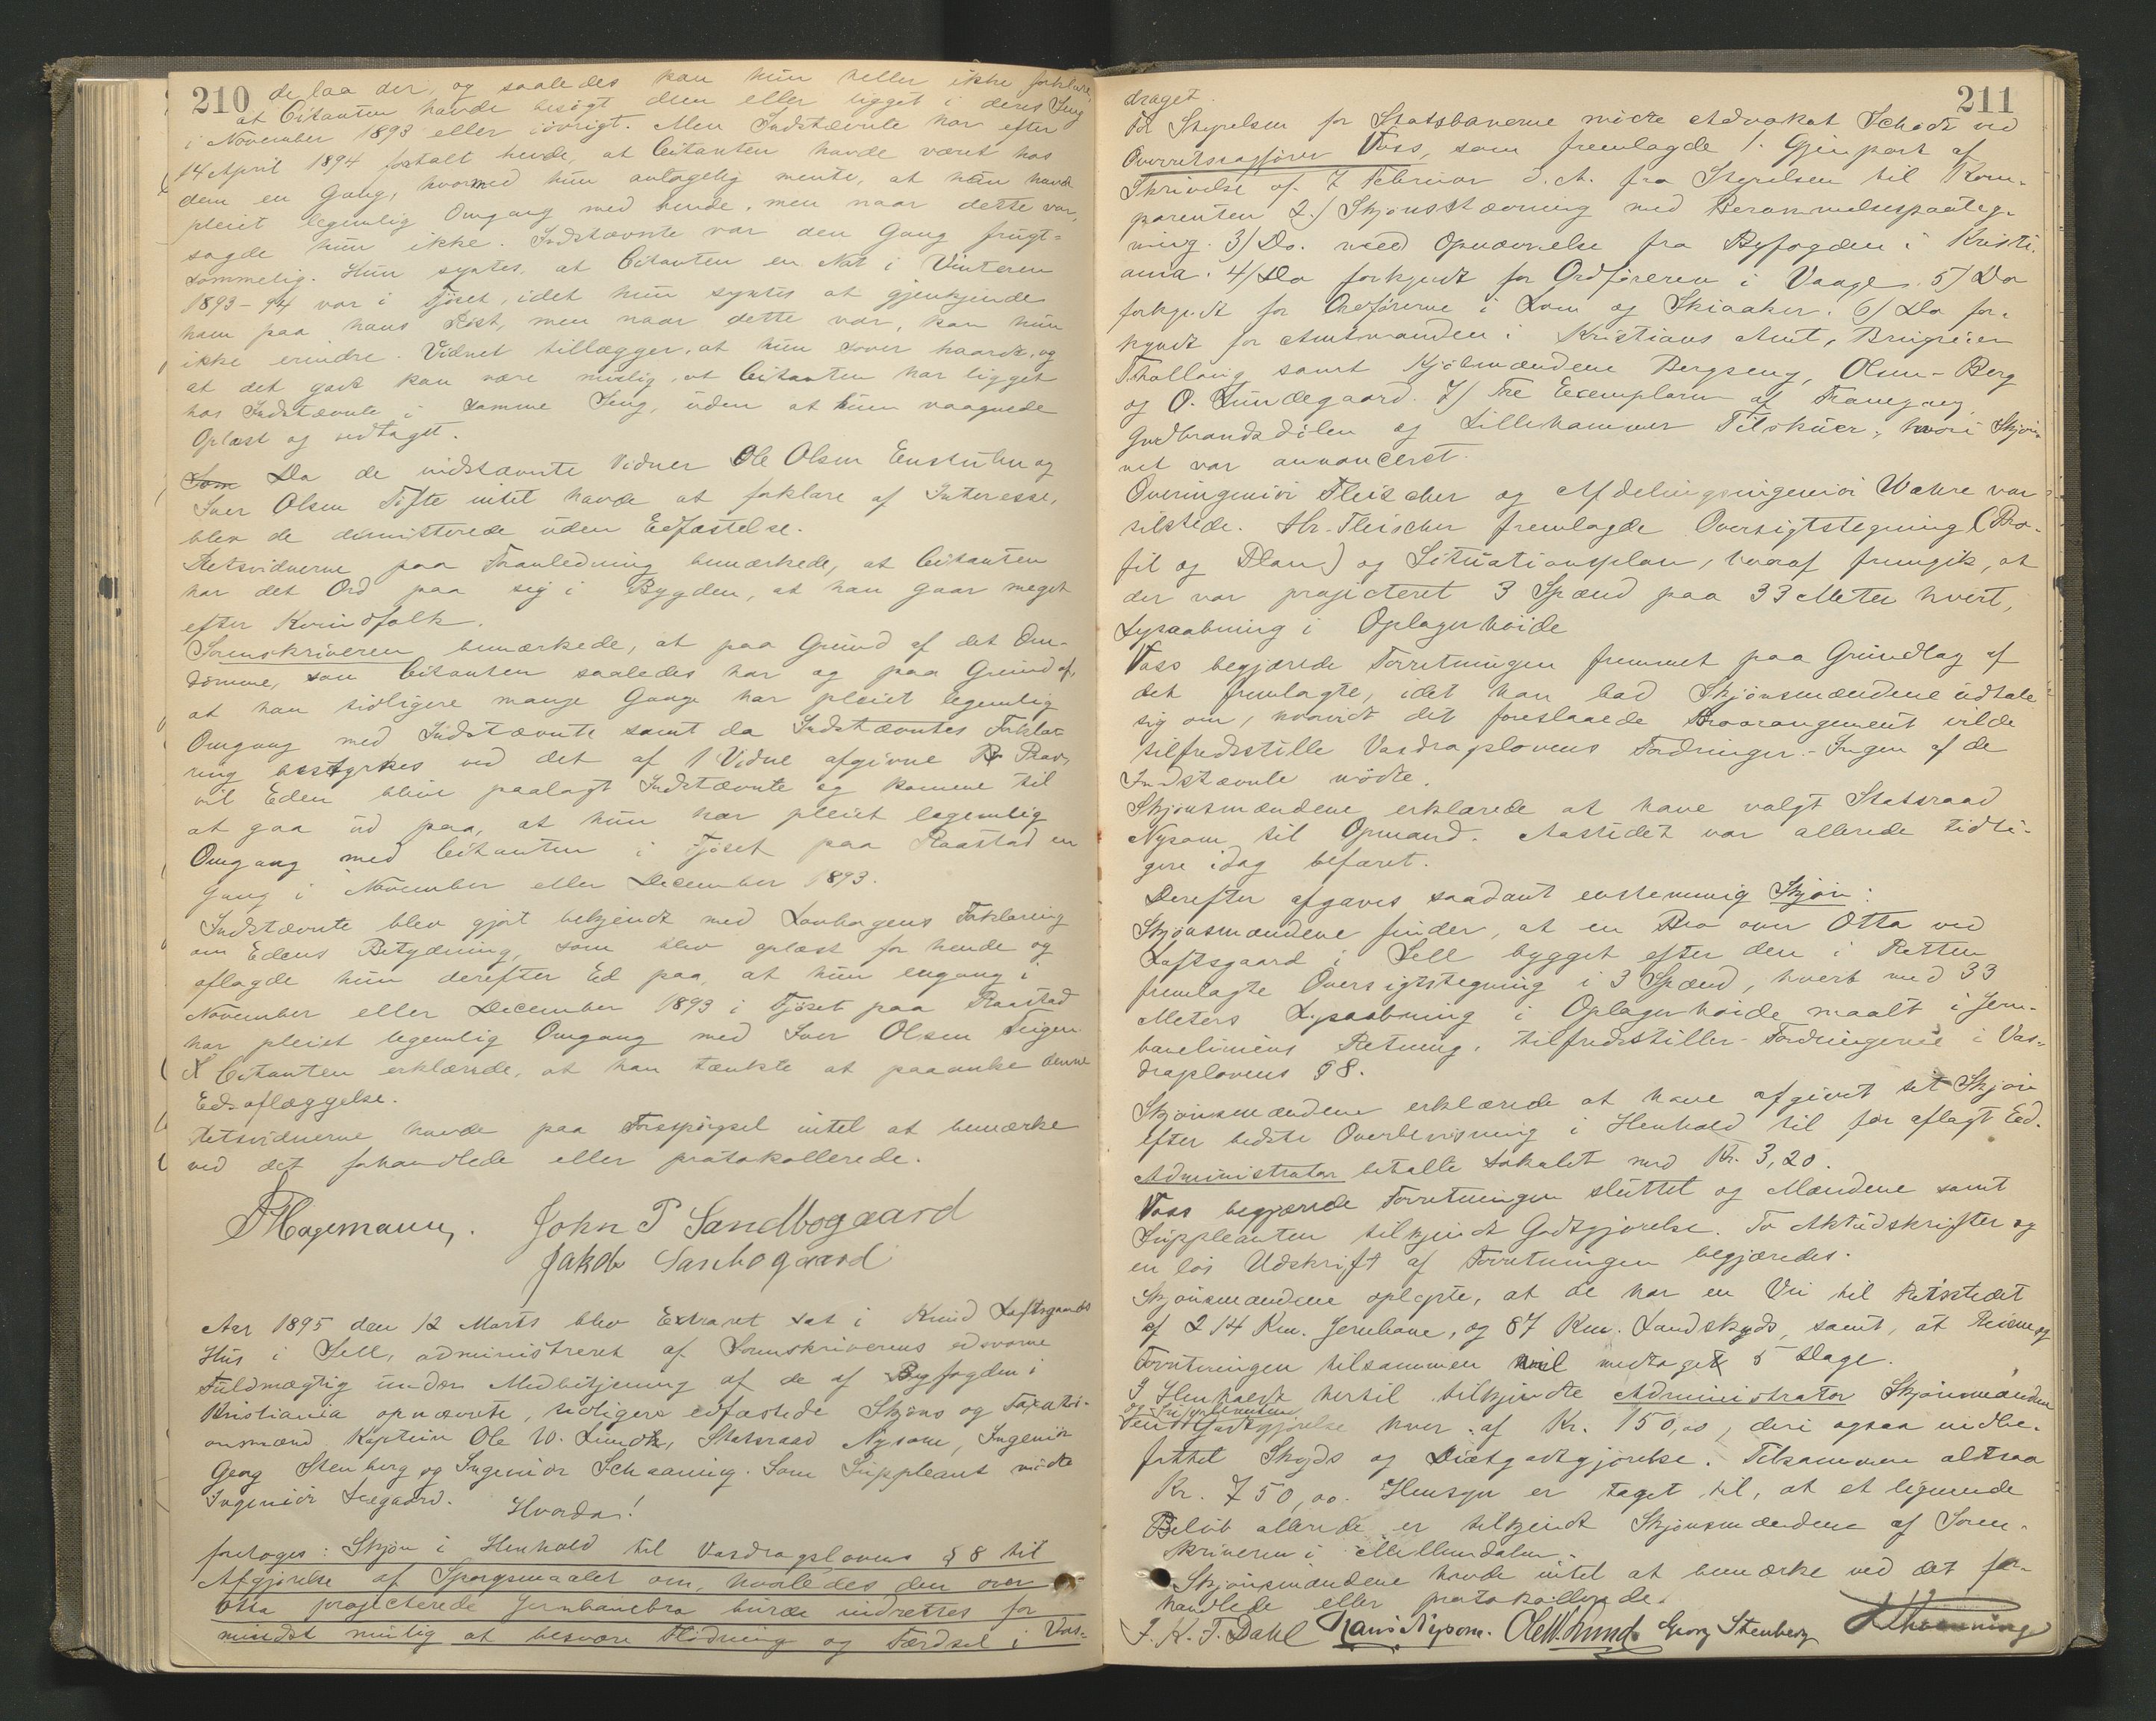 210
de laa der, og saaledes kan hun heller ikke forklare,
at Citanten havde besøgt dem eller ligget i deres Seng
i November 1893 eller iøvrigt. Men Indstævnte har efter
14 April 1894 fortalt hende, at Citanten havde været hos
dem en Gang, hvormed hun antagelig mente, at han havde
pleiet legemlig Omgang med hende, men naar dette var,
sagde hun ikke. Indstævnte var den Gang frugt-
sommelig. Hun syntes, at Citanten en Nat i Vinteren
1893-94 var i Fjøset, idet hun syntes at gjenkjende
ham paa hans Røst, men naar dette var, kan hun
ikke erindre. Vidnet tillægger, at hun sover haardt, og
at det godt kan være mulig, at Citanten har ligget
hos Indstævnte i samme Seng, uden at hun vaagnede
Oplæst og vedtaget.
Som Da de indstævnte Vidner Ole Olsen Enstulen og
Iver Olsen Tofte intet havde at forklare af Interesse,
blev de dimitterede uden Edfæstelse.
Retsvidnerne paa Foranledning bemærkede, at Citanten
har det Ord paa sig i Bygden, at han gaar meget
efter Kvindfolk.
Sorenskriveren bemærkede, at paa Grund af det Om-
dømme, som Citanten saaledes har og paa Grund af,
at han tidligere mange Gange har pleiet legemlig
Omgang med Indstævnte samt da Indstævntes Forkla-
ring bestyrkes ved det af 1 Vidne afgivne Prov,
vil Eden blive paalagt Indstævnte og komme til
at gaa ud paa, at hun har pleiet legemlig
Omgang med Citanten i Fjøset paa Raastad en
Gang i November eller December 1893.
Indstævnte blev gjort bekjendt med Lovbogens Forklaring
om Edens Betydning, som blev oplæst for hende og
aflagde hun derefter Ed paa, at hun engang i
November eller December 1893 i Fjøset paa Raastad
har pleiet legemlig Omgang med Iver Olsen Teigen
Citanten erklærede, at han tænkte at paaanke denne
Edsaflæggelse.
Retsvidnerne havde paa Forespørgsel intet at bemærke
ved det forhandlede eller protokollerede.
Hagemann. John P Sandbogaard
Jakob Sandbogaard
Aar 1895 den 12 Marts blev Extraret sat i Knud Loftsgaards
Hus i Sell, administreret af Sorenskriverens edsvorne
Fuldmægtig under Medbetjening af de af Byfogden i
Kristiania opnævnte, tidligere edfæstede Skjøns og Taxati-
onsmænd Kaptein Ole W. Lund, Statsraad Nysom, Ingeniør
Georg Stenberg og Ingeniør Schaaning. Som Suppleant mødte
Ingeniør Leegaard.
Hvorda!
foretoges: Skjøn i Henhold til Vasdragslovens § 8 til
Afgjørelse af Spørgsmaalet om, hvorledes den over
Otta projecterede Jernbanebro burde indrettes for
mindst mulig at besvære Flødning og Færdsel i Vas-
211
draget.
For Styrelsen for Statsbanerne mødte Advokat Schødt ved
Overretssagfører Voss, som fremlagde 1. Gjenpart af
Skrivelse af 7 Februar d.A. fra Styrelsen til Kom-
parenten 2.) Skjønsstævning med Berammelsespaateg-
ning. 3) Do. med Opnævnelse fra Byfogden i Kristi-
ania. 4) Do forkyndt for Ordføreren i Vaage. 5) Do
forkyndt for Ordførerne i Lom og Skiaaker. 6) Do for-
kyndt for Amtmanden i Kristians Amt, Brugseier
Thallaug samt Kjøbmændene Bergseng, Olsen-Berg
og O. Lundegaard. 7) Tre Exemplarer af Framgang,
Gudbrandsdølen og Lillehammer Tilskuer, hvori Skjøn-
net var annonceret.
Overingeniør Fleischer og Afdelingsingeniør Wahre var
tilstede. Hr. Fleischer fremlagde Oversigtstegning (Pro-
fil og Plan) og Situationsplan, hvoraf fremgik, at
der var projecteret 3 Spænd paa 33 Meter hvert,
Lysaabning i Oplagerhøide
Voss begjærede Forretningen fremmet paa Grundlag af
det fremlagte, idet han bad Skjønsmændene udtale
sig om, hvorvidt det foreslaaede Broarangement vilde
tilfredsstille Vasdragslovens Fordringer. - Ingen af de
Indstævnte mødte.
Skjønsmændene erklærede at have valgt Statsraad
Nysom til Opmand. Aastedet var allerede tidli-
gere idag befaret.
Derefter afgaves saadant enstemmig Skjøn:
Skjønsmændene finder, at en Bro over Otta ved
Loftsgaard i Sell bygget efter den i Retten
fremlagte Oversigtstegning i 3 Spænd, hvert med 33
Meters Lysaabning i Oplagerhøide maalt i Jern-
banelinies Retning, tilfredsstiller Fordringerne i Vas-
dragslovens § 8.
Skjønsmændene erklærede at have afgivet sit Skjøn
efter bedste Overbevisning i Henhold til før aflagt Eed.
Administrator betalte Lokalet med Kr. 3,20.
Voss begjærede Forretningen sluttet og Mændene samt
Suppleanten tilkjendt Godtgjørelse. To Aktudskrifter og
en løs Udskrift af Forretningen begjæredes.
Skjønsmændene oplyste, at de har en Vei til Retsstedet
af 214 Km. Jernbane, og 87 Km. Landskyds, samt, at Reisen og
Forretningen tilsammen vil medtaget 5 Dage.
I Henhold hertil tilkjendte Administrator Skjønsmændene
og Suppleanten
Godtgjørelse hver af Kr. 150,00, deri ogsaa indbe-
fattet Skyds og Diætgodtgjørelse. Tilsammen altsaa
Kr. 750,00. Hensyn er taget til, at et lignende
Beløb allerede er tilkjendt Skjønsmændene af Soren-
skriveren i Mellemdalen.
Skjønsmændene havde intet at bemærke ved det for-
handlede eller protokollerede.
F. K. T. Dahl Hans Nysom. Ole W. Lund. Georg Stenberg Schaanning